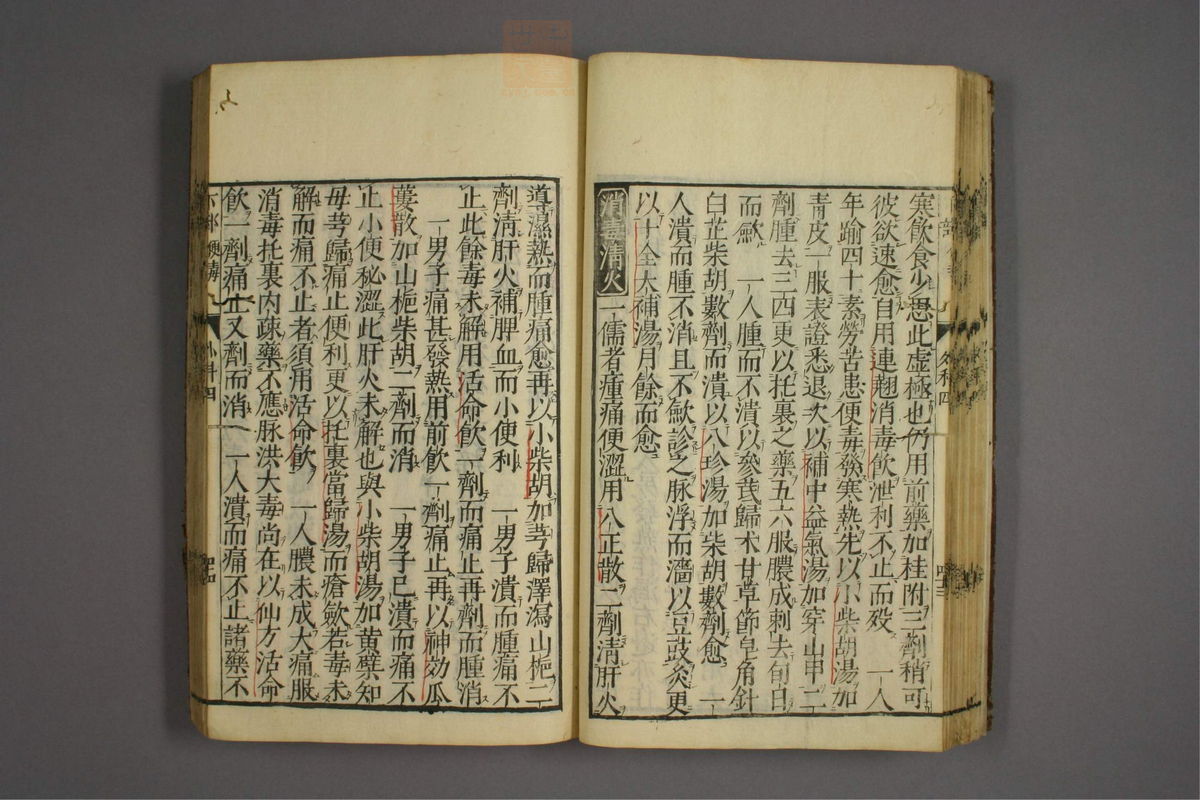 寒飲食少思此虛極也仍用前藥加桂附三劑稍可
彼欲速愈自用連翹消毒飲泄利不止而殁 一人
年踰四十素勞苦患便毒發寒熱先以小柴胡湯加
青皮一服表證悉退次以補中益氣湯加穿山甲二
劑腫去三四更以托裏之藥五六服膿成刺去旬日
而歛 一人腫而不潰以參芪歸术甘草節皂角針
白芷柴胡數劑而潰以八珍湯加柴胡數劑愈 一
人潰而腫不消且不歛診之脉浮而濇以豆豉灸更
以十全大補湯月餘而愈
消毒清火 一儒者瘇痛便澀用八正散二劑清肝火
外科四
導濕熱而腫痛愈再以小柴胡加芎歸澤瀉山梔二
劑清肝火補脾血而小便利 一男子潰而腫痛不
止此餘毒未解用活命飲一劑而痛止再劑而腫消
一男子痛甚發熱用前飲一劑痛止再以神効瓜
蔞散加山梔柴胡二劑而消 一男子已潰而痛不
止小便秘澀此肝火未解也與小柴胡湯加黄蘗知
母芎歸痛止便利更以托裏當歸湯而瘡歛若毒未
解而痛不止者須用活命飲 一人膿未成大痛服
消毒托裏内疎藥不應脉洪大毒尚在以仙方活命
飲一劑痛止又劑而消 一人潰而痛不止諸藥不
下部 便毒
外科四